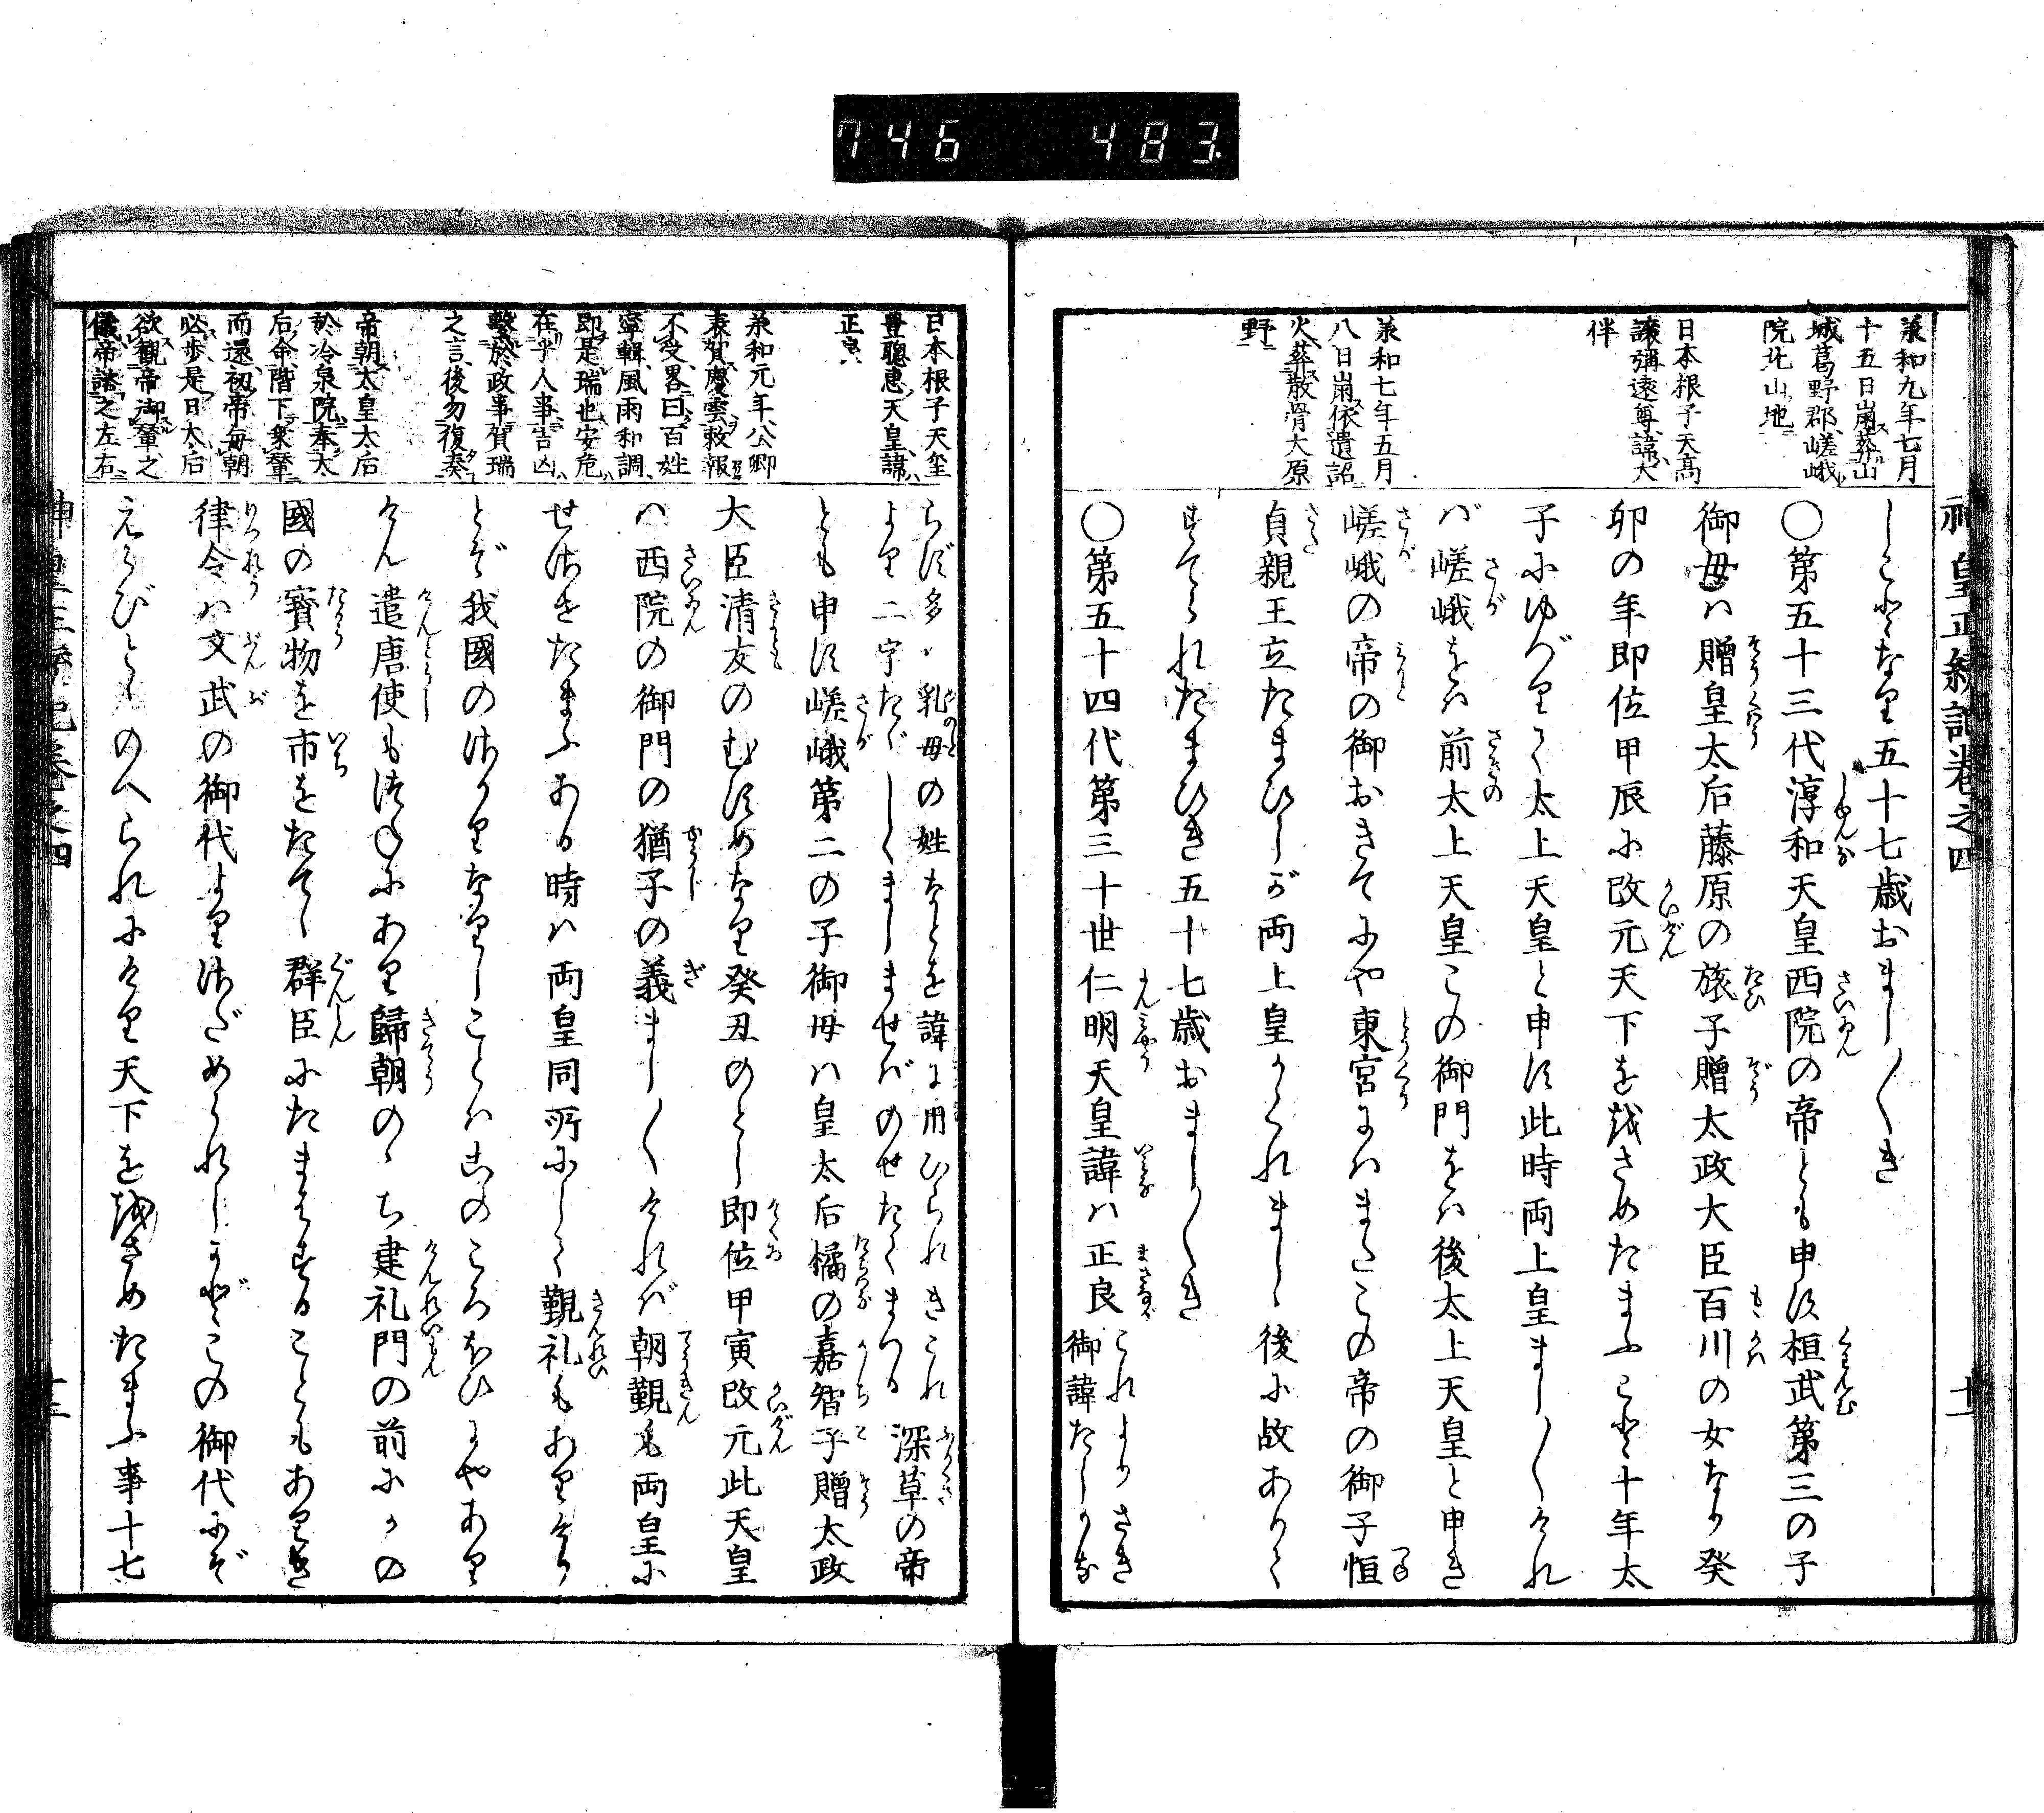 746 483.
神皇正統記卷之四
十二
承和九年七月
十五日崩葬山
城葛野郡嵯峨
院北山地
日本根子天髙
譲彌遠尊諱大
伴
承和七年五月
八日崩依遺詔
火葬散骨大原
野
しことなり五十七歳おまし〳〵き
〇第五十三代淳和天皇西院の帝とも申す桓武第三の子
御母ハ贈皇太后藤原の旅子贈太政大臣百川の女なり癸
卯の年即位甲辰に改元天下をおさめたまふこと十年太
子にゆづりて太上天皇と申す此時両上皇まし〳〵けれ
バ嵯峨をハ前太上天皇この御門をハ後太上天皇と申き
嵯峨の帝の御おきてにや東宮にハまたこの帝の御子恒
貞親王立たまひしが両上皇かくれましゝ後に故ありて
すてられたまひき五十七歳おまし〳〵き
〇第五十四代第三十世仁明天皇諱ハ正良これよりさき御諱たしかな
日本根子天璽
豊聰惠天皇諱
正良
承和元年公卿
表賀慶雲敕報
不受畧曰百姓
寧輯風雨和調
即是瑞也安危
在乎人事吉凶
繫於政事賀瑞
之言後勿復奏
帝朝太皇太后
於冷泉院奉太
后命階下乗輦
而還初帝毎朝
必歩是日太后
欲觀帝御輦之
儀帝諮之左右
らす多ハ乳母の姓なとを諱に用ひられきこれ
より二字たゞしくましませバのせたてまつる深草の帝
とも申す嵯峨第二の子御母ハ皇太后橘の嘉智子贈太政
大臣清友のむすめなり癸丑のとし即位甲寅改元此天皇
ハ西院の御門の猶子の義まし〳〵けれバ朝覲も両皇に
せさせたまふある時ハ両皇同所にして覲礼もありけり
とぞ我國のさかりなりしことハこのころほひにやあり
けん遣唐使もつねにあり歸朝のゝち建礼門の前にかの
國の寳物を市をたてゝ群臣にたまはすることもありき
律令ハ文武の御代よりさだめられしかどこの御代にぞ
えらびとゝのへられにけり天下をおさめたまふ事十七
神皇正統記卷之四
十三